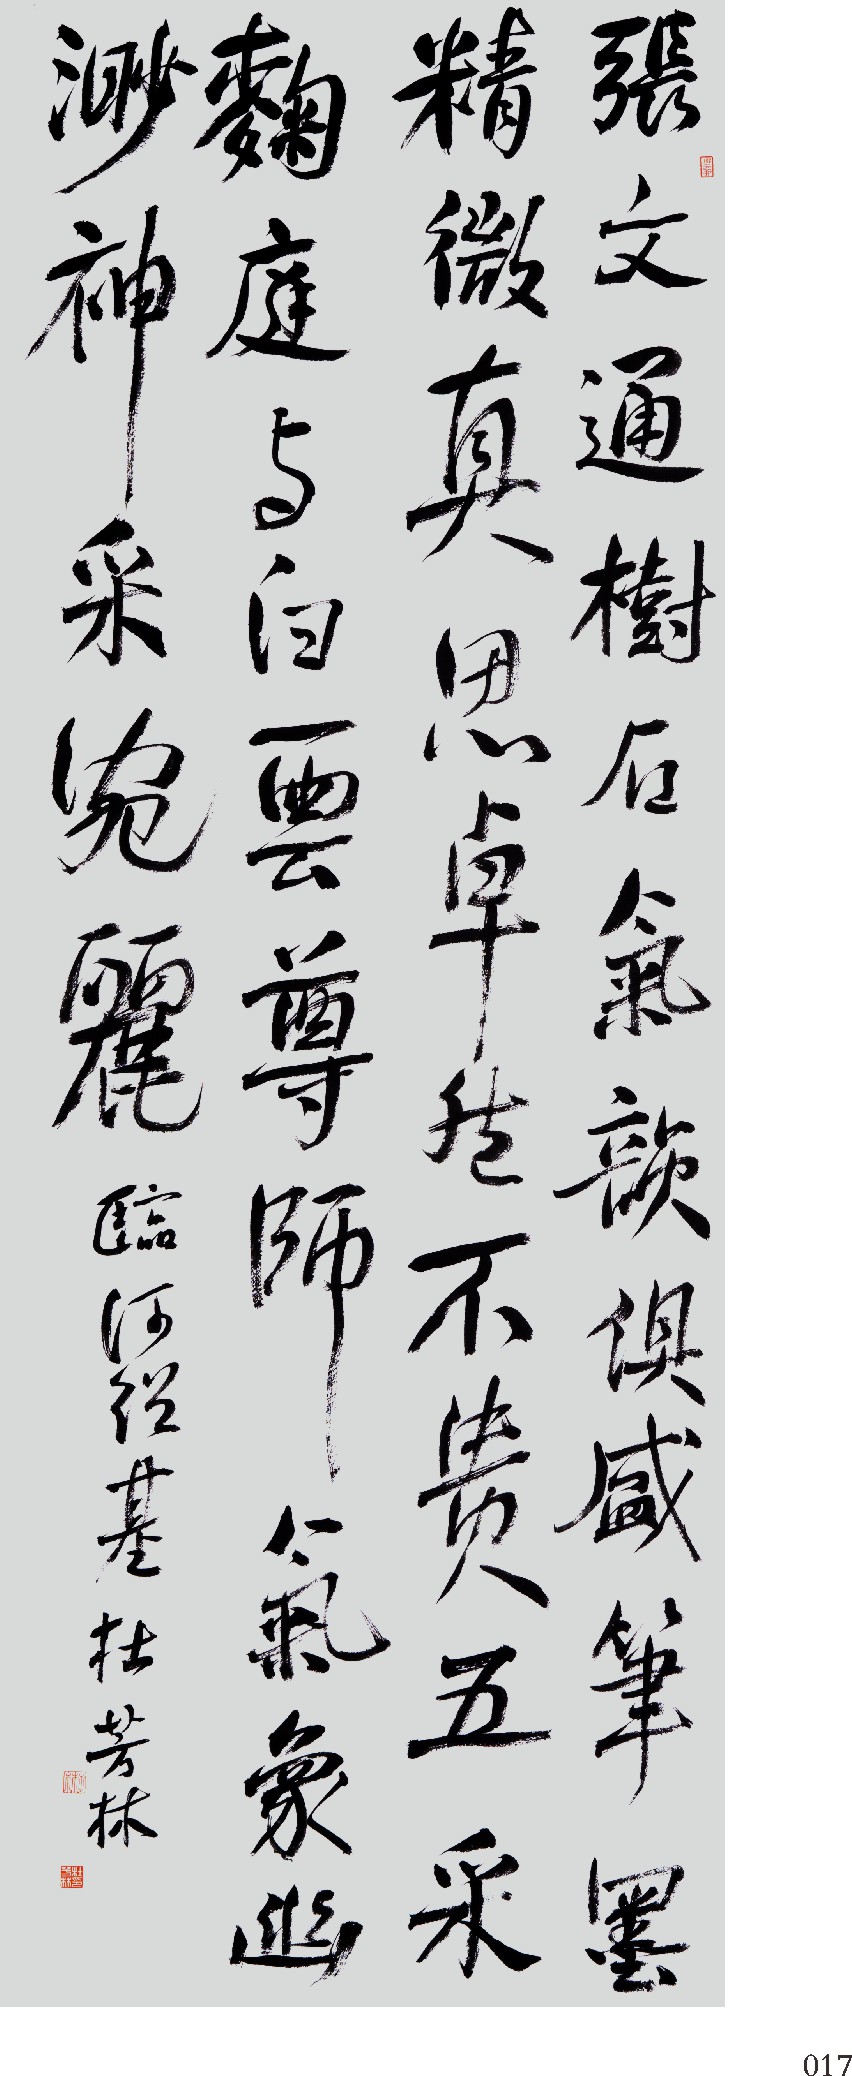 張文通樹石氣韻俱盛筆墨
精微真思卓然不貴五采
麴庭与白雲尊師氣象幽
渺神采宛麗 臨何紹基 杜芳林
017